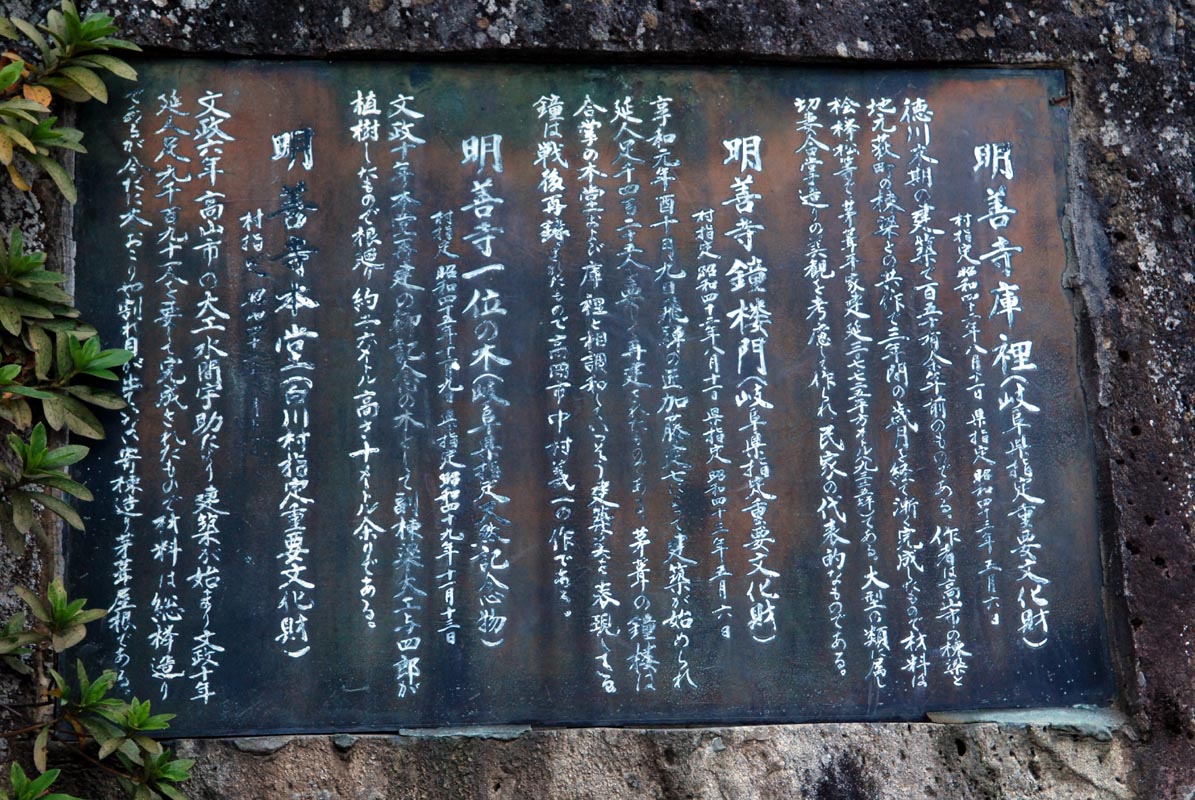 明善寺庫裡(岐阜県指定重要文化財)
村指定 昭和四十一年八月十二日 県指定 昭和四十三年五月六日
徳川末期の建築で百五十有余年前のものである。作者は高山市の棟梁と
地元荻町の棟梁との共作で三年間の歳月を経て漸く完成したもので材料は
桧椽松等で茅葺平家建 延 である。大型の類属し
切妻合掌造りの美観を考慮し作られ民家の代表的なものである。
明善寺鐘楼門(岐阜県指定重要文化財)
村指定 昭和四十一年八月十二日 県指定 昭和四十三年五月六日
享和元年酉十月九日飛騨の匠加藤 によって建築が始められ
延人足 を要して再建されたものである 茅葺の鐘楼は
合掌の本堂及び庫裡と相調和していっそう建築美を表現してる
鐘は戦後再鋳されたもので高岡市中村義一の作である。
明善寺一位の木(岐阜県指定天然記念物)
村指定 昭和四十 年 県指定 昭和四十九年十一月十三日
文政十年本堂再建の御記念の木として副棟梁大工与四郎が
植樹したもので根廻り約二・六メートル高さ十メートル余りである
明善寺本堂(白川村指定重要文化財)
村指定 昭和四十
文政六年高山市の大工水間宇助により建築が始まり文政十年
延人足九千百九十八人を要して完成されたもので材料は総欅造り
であるが今だに大おこりや割れ目が出ていない安棟造り茅葺屋根である